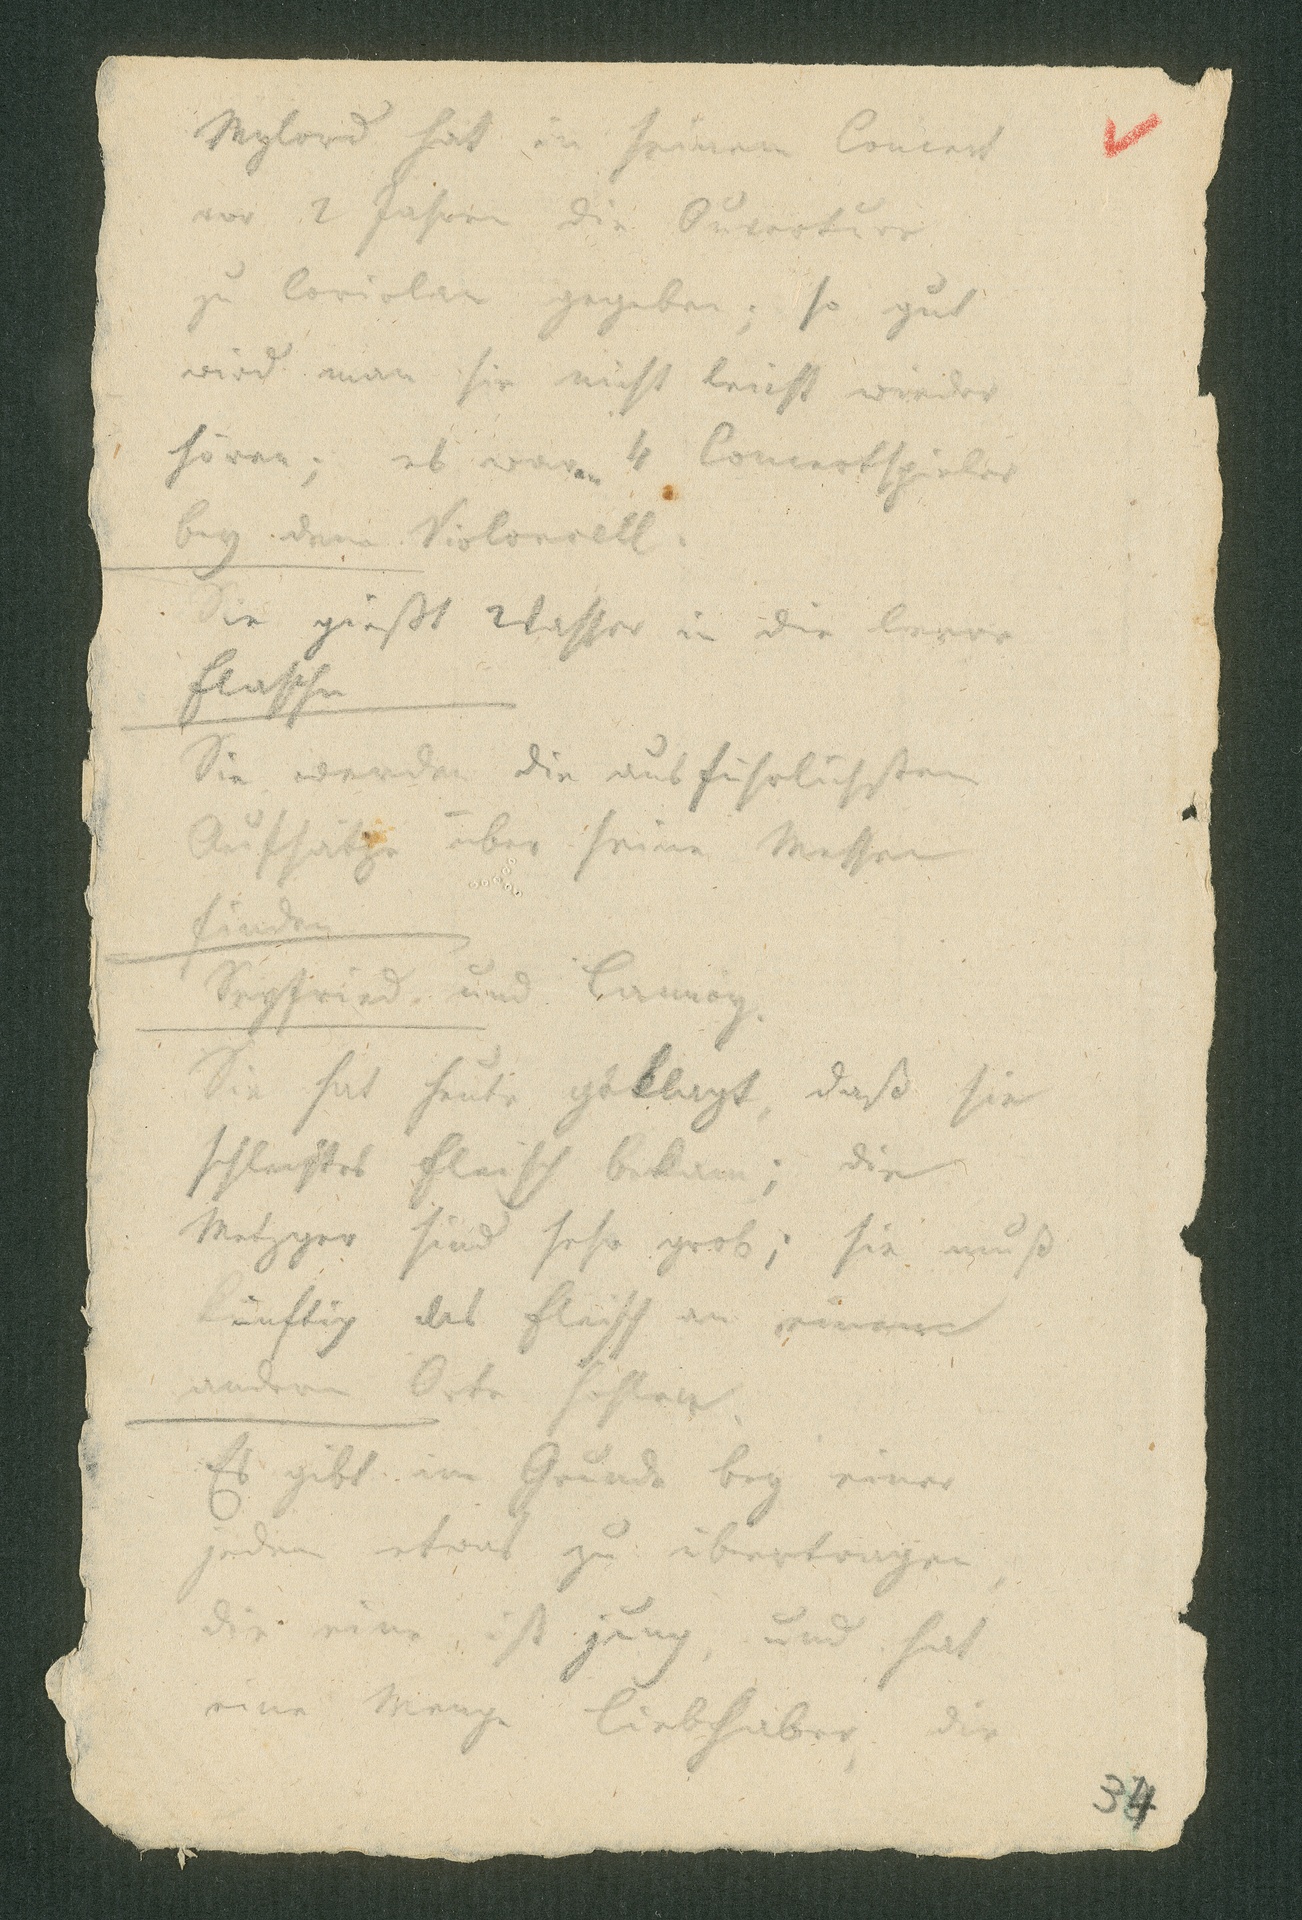 Mylord hat in seinem Concert
vor 2 Jahren die Ouverture
zu Coriolan gegeben; so gut
wird man sie nicht leicht wieder
hören; es waren 4 Concertspieler
bey dem Violoncell.
Sie gießt Wasser in die leere
Flasche
Sie werden die ausführlichsten
Aufsätze über seine Messen
finden
Seyfried und Lannoy.
Sie hat heute geklagt, daß sie
schlechtes Fleisch bekam; die
Metzger sind sehr grob; sie muß
künftig das Fleisch an einem
andern Orte hohlen.
Es gibt im Grunde bey einer
jeden etwas zu übertragen,
die eine ist jung, und hat
eine Menge Liebhaber, die
34